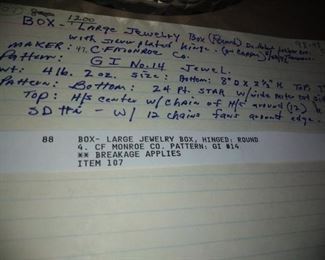 BOX - 1200 LARGE JEWELRY BOX (ROUND)
with silver plated hinge.
MAKER: 47. C F MONROE Co.
Pattern: GI No. 14 Jewel.
wt: 4 lb. 2 oz. size: Bottom: 8" D X 3 1/2" H TOP:
Pattern: Bottom: 24 Pt. STAR w/
TOP: H/S center w/ chain of H/S around (12)
SD - w/ 12 chains fans around edge.
88 BOX- LARGE JEWELRY BOX, HINGED: ROUND
4. CF MONROE CO. PATTERN: GI #14
** BREAKAGE APPLIES
ITEM 107